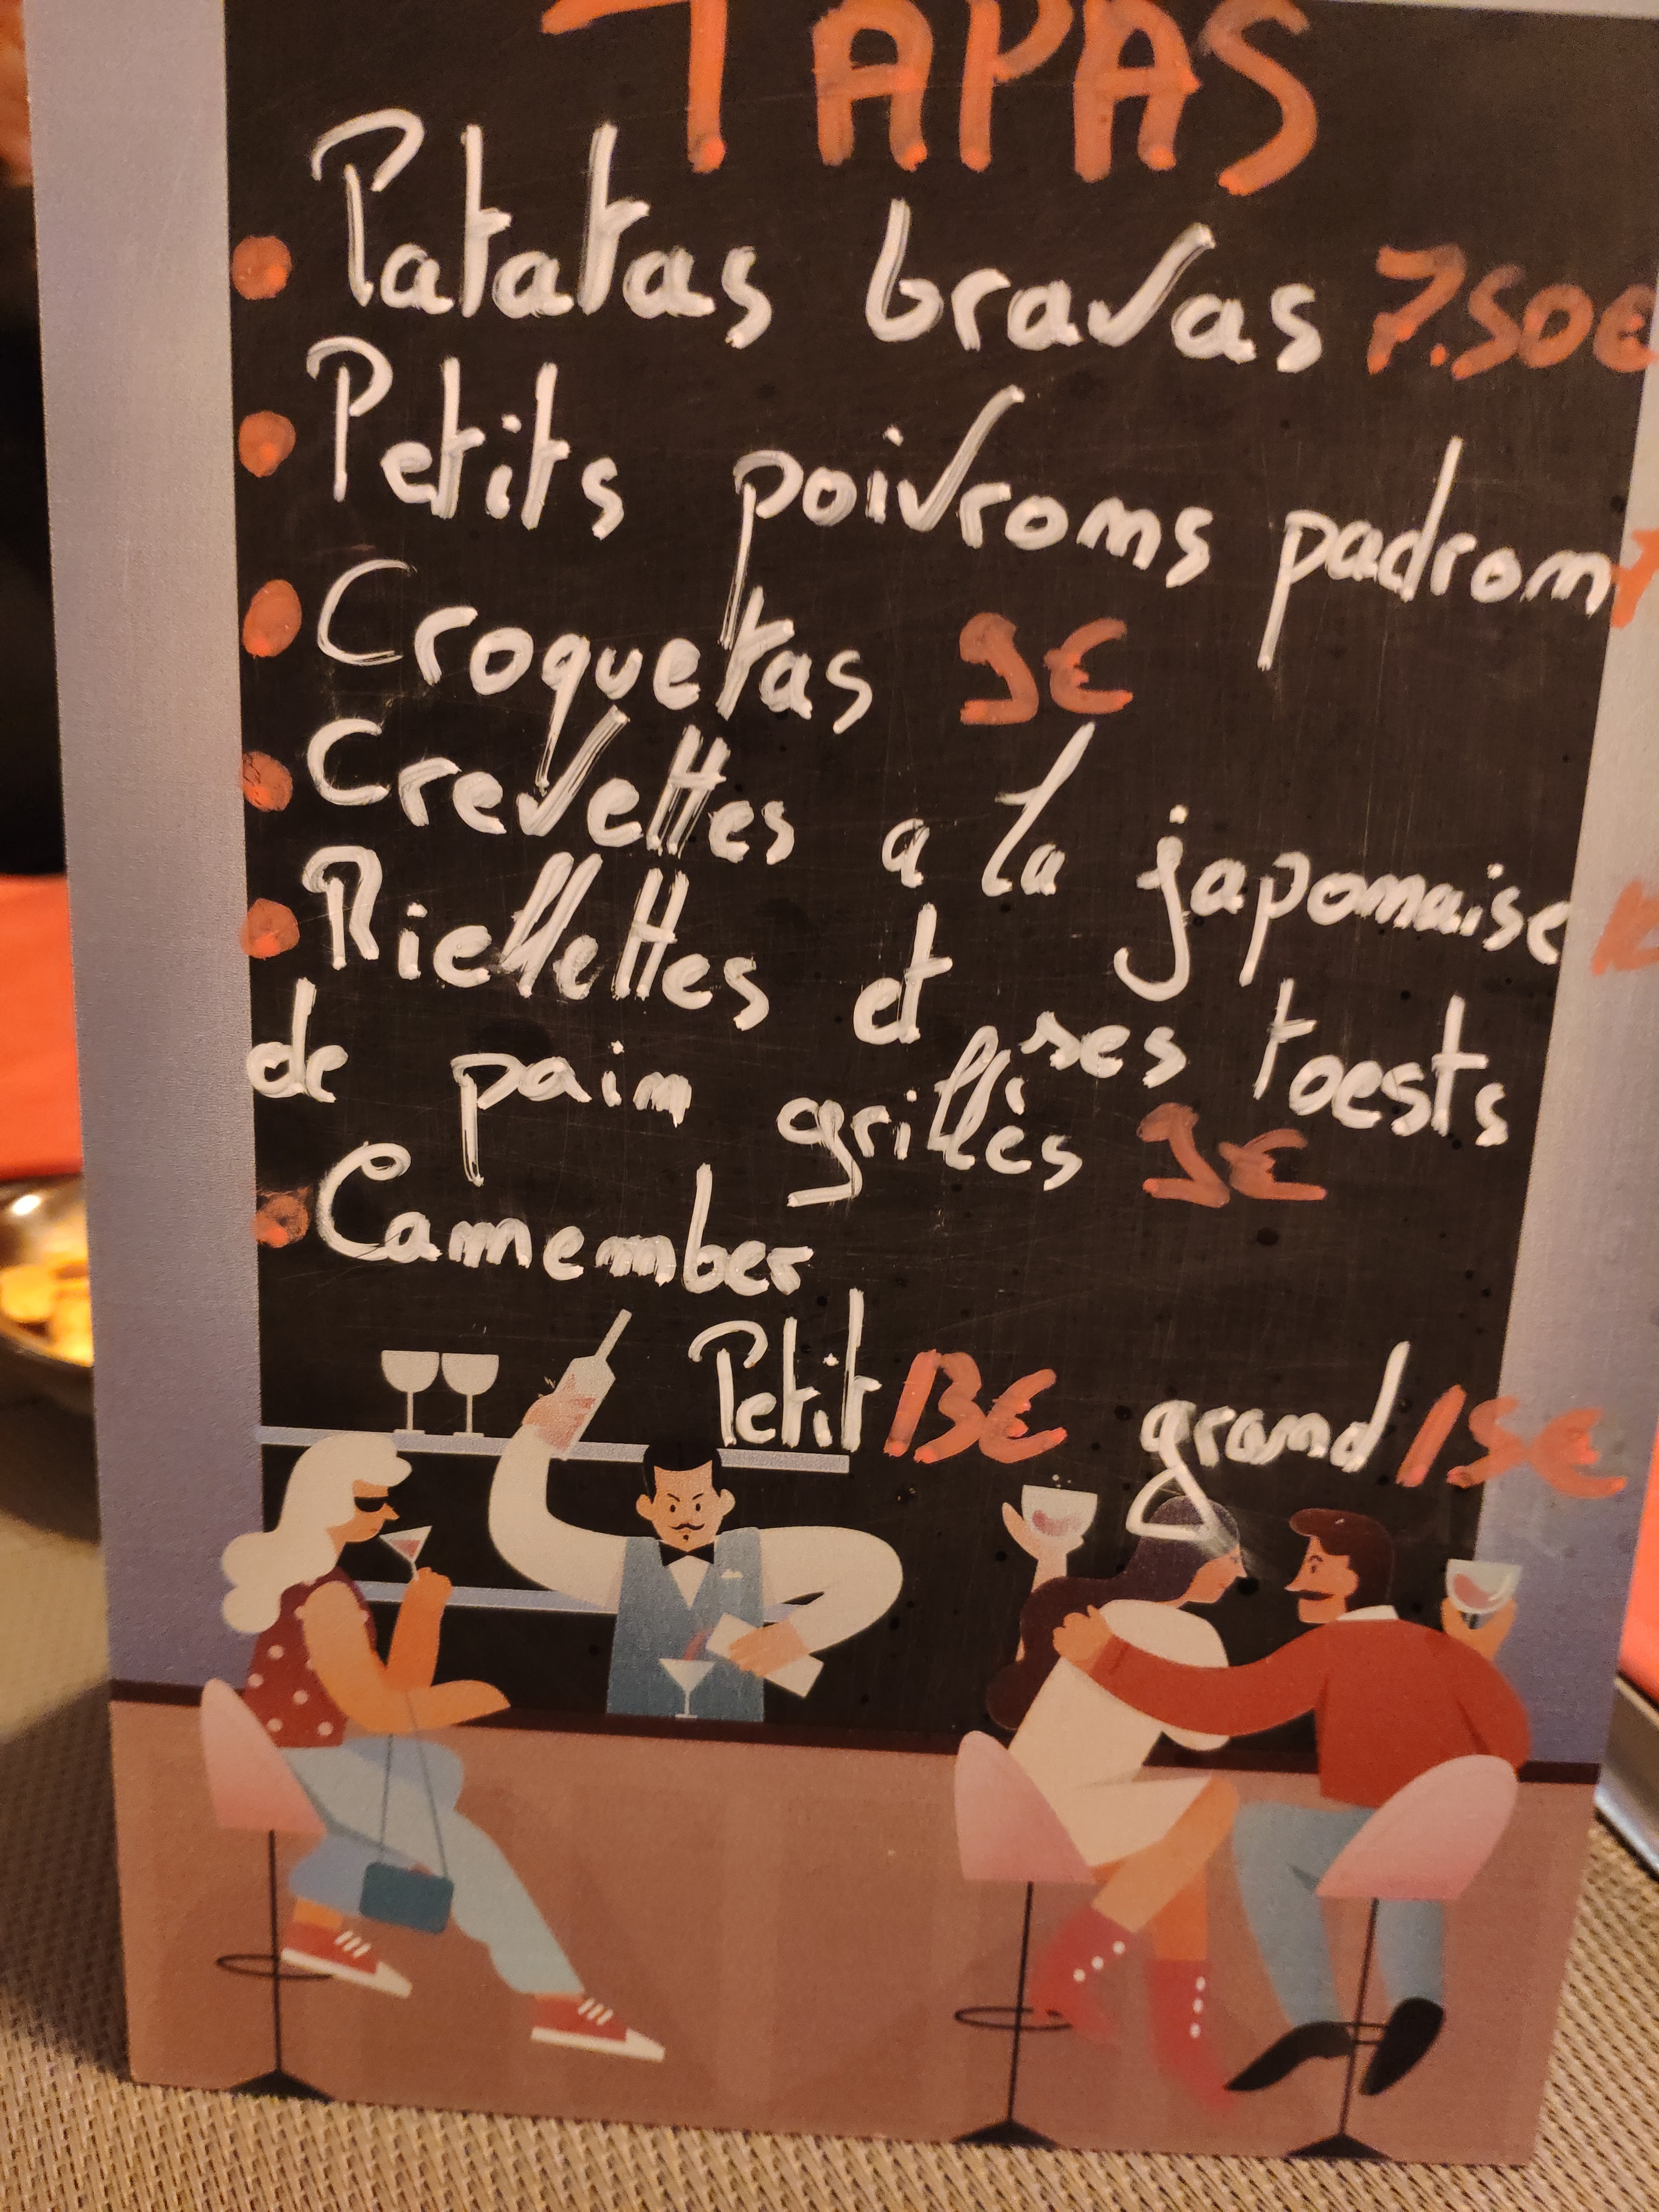 TAPAS
Patatas bravas 7.50€
Petits poivroms padrom
Croquetas 9€
Crevettes a la japomaise
Riellettes et ses toests
de paim grillés 9€
Camember
Petit 13€ grand 15€